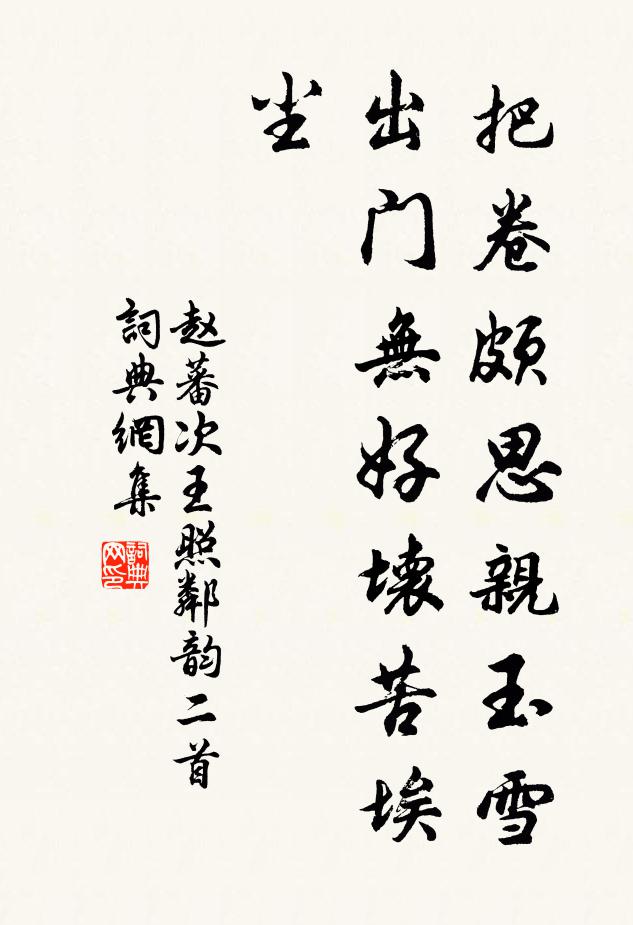 把卷頗思親玉雪
出门無好壞苦埃
尘
赵蕃次王照鄰韵二首
詞典網集
詞典网印